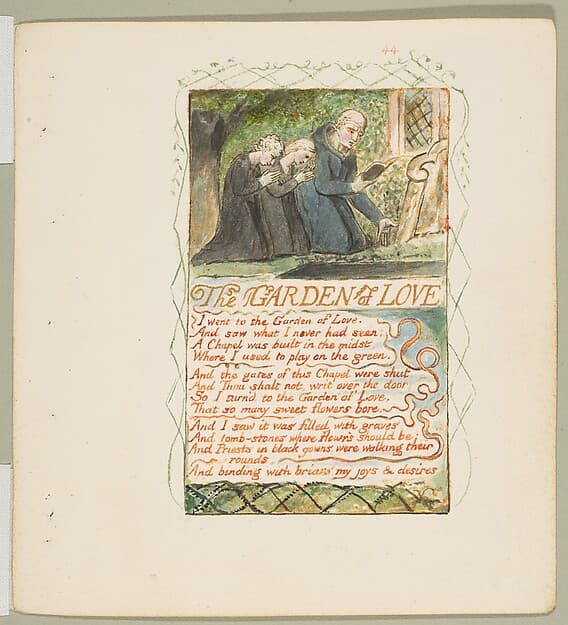 44
The GARDEN of LOVE
I went to the Garden of Love.
And saw what I never had seen:
A Chapel was built in the midst,
Where I used to play on the green.
And the gates of this Chapel were shut
And Thou shalt not, writ over the door;
So I turnd to the Garden of Love,
That so many sweet flowers bore.
And I saw it was filled with graves
And tomb-stones where flowers should be:
And Priests in black gowns were walking their
rounds
And binding with briars my joys & desires